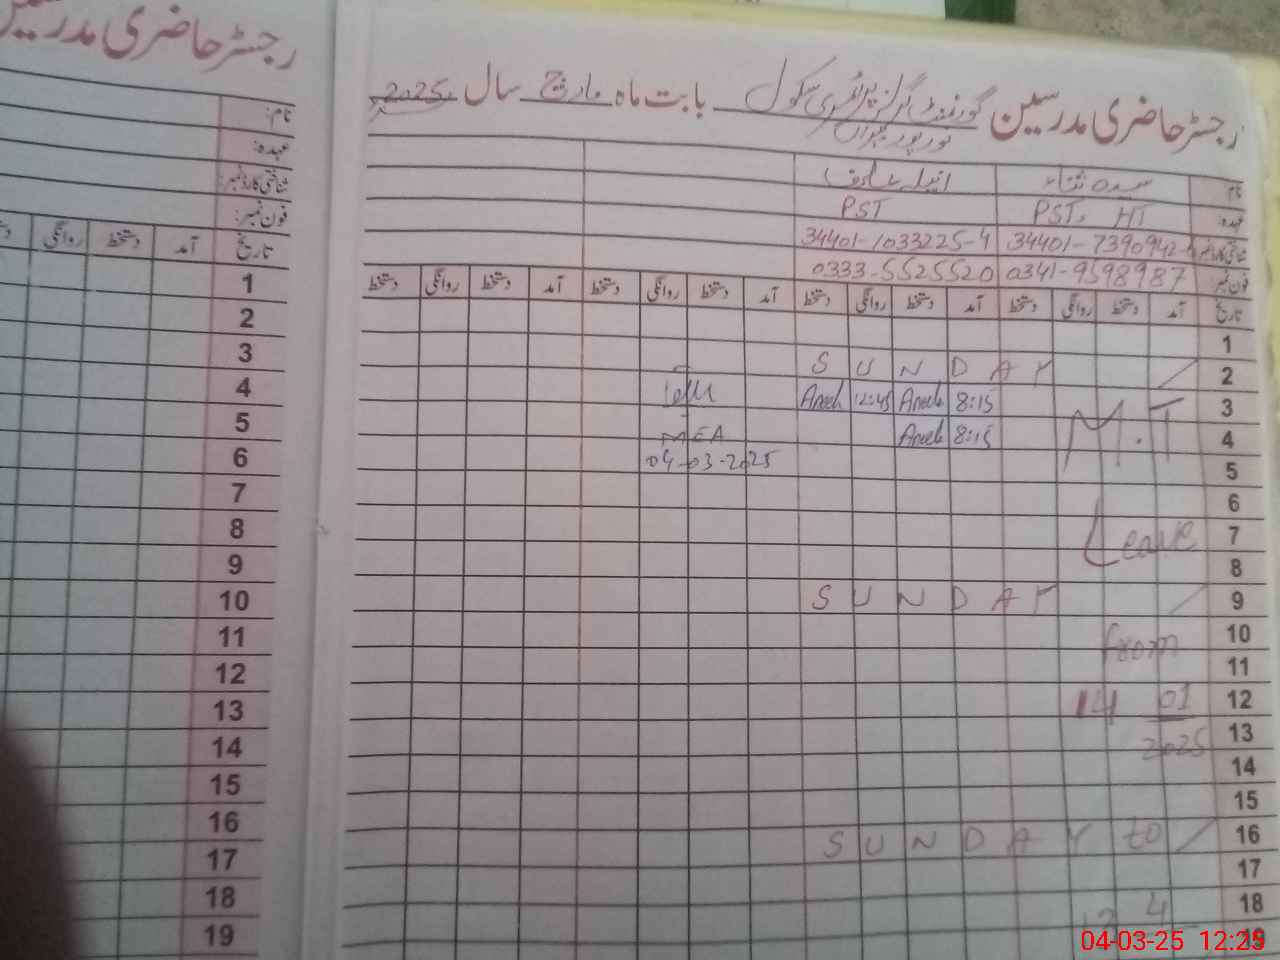 رجسٹر حاضری مدرسین گورنمنٹ گرلز پرائمری سکول بابت ماہ مارچ سال 2025
نور پور
نام سیدہ ثناء انیلہ
عہدہ: PST, HT PST
34401-7390942- 34401-1033225-4
فون نمبر: 0341-9598987 0333-5525520
تاریخ آمد دستخط روانگی دستخط آمد دستخط روانگی دستخط آمد دستخط روانگی دستخط آمد دستخط روانگی دستخط
1
2 SUNDAY
3 8:15 Aneela 12:45 Aneela
4 M.T 8:15 Aneela
MEA
5 04-03-2025
6
7 Leave
8
9 SUNDAY
10 from
11
12 14 01
13 2025
14
15
16 to SUNDAY
17
18 4
19
رجسٹر حاضری مدرسین
نام:
عہدہ:
شناختی کارڈ نمبر:
فون نمبر:
تاریخ آمد دستخط روانگی
1
2
3
4
5
6
7
8
9
10
11
12
13
14
15
16
17
18
19
04-03-25 12:25